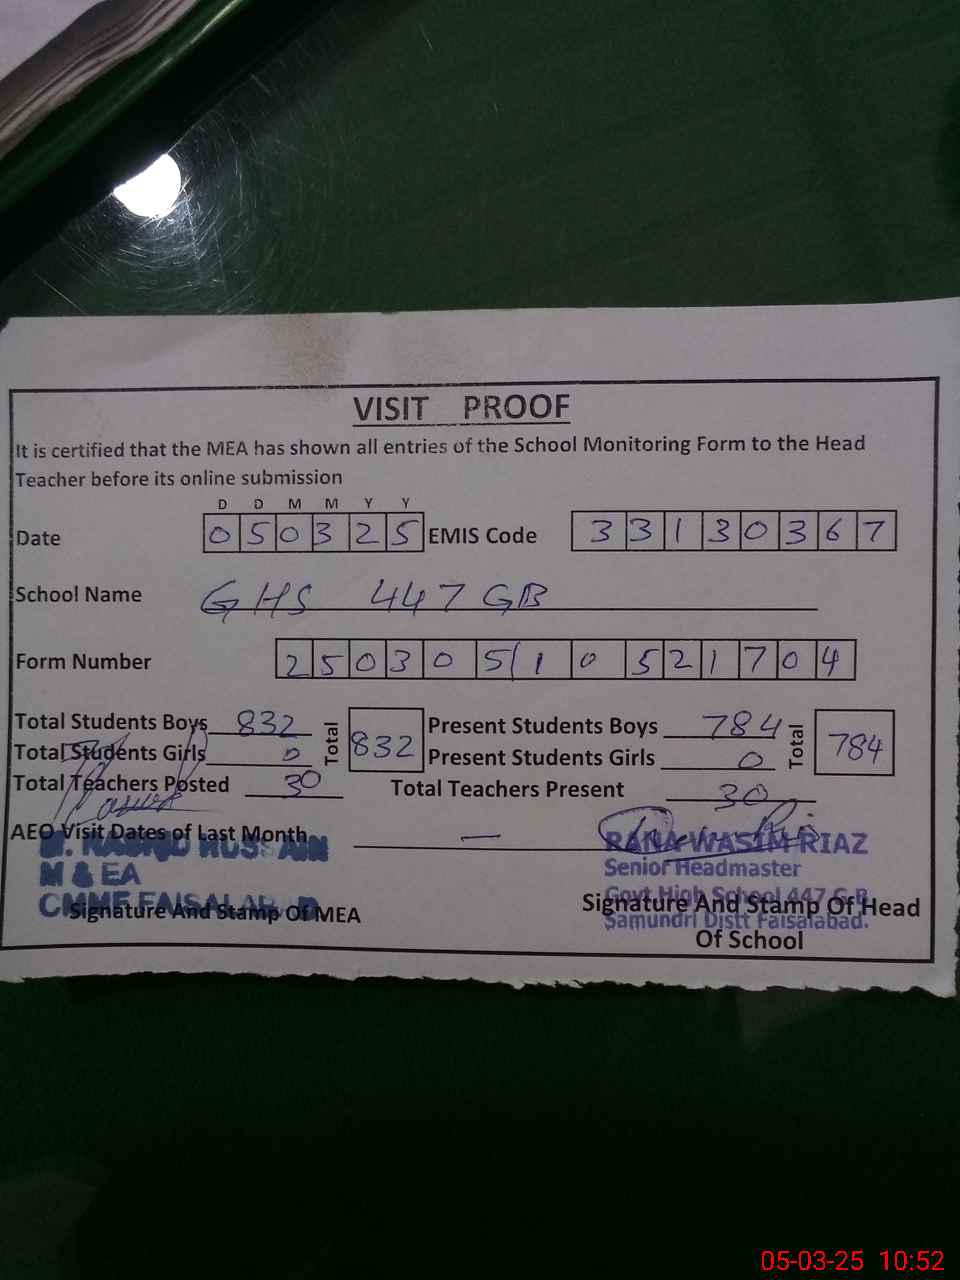 VISIT PROOF
It is certified that the MEA has shown all entries of the School Monitoring Form to the Head
Teacher before its online submission
D D M M Y Y
Date 0 5 0 3 2 5 EMIS Code 3 3 1 3 0 3 6 7
School Name GHS 447 GB
Form Number 2 5 0 3 0 5 1 0 5 2 1 7 0 4
Total Students Boys 832 Total 832 Present Students Boys 784 Total 784
Total Students Girls 0 Present Students Girls 0
Total Teachers Posted 30 Total Teachers Present 30
AEO Visit Dates of Last Month —
HUSSAIN
M & EA
CMMF FAISALABAD
Signature And Stamp Of MEA
RANA WASIM RIAZ
Senior Headmaster
Govt. High School 447 G.B.
Samundri Distt Faisalabad.
Signature And Stamp Of Head
Of School
05-03-25 10:52